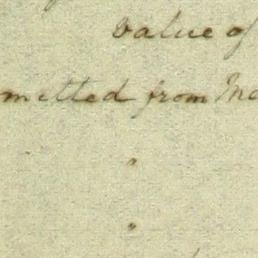 value of
mitted from
"
"